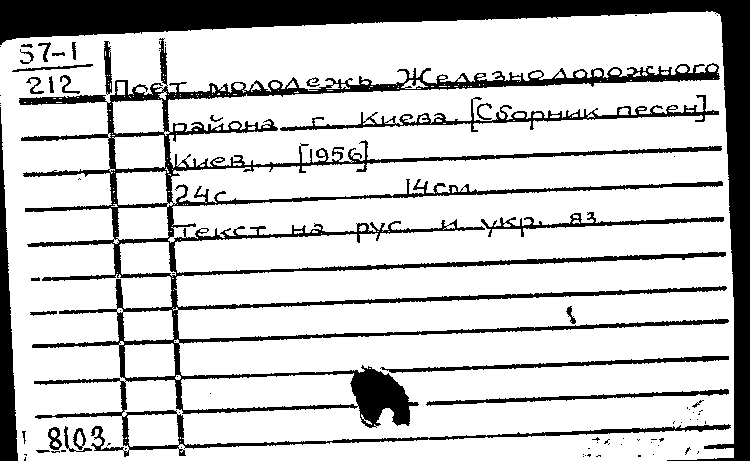 57-1
212
Поет молодежь Железнодорожного
района г. Киева. [Сборник песен]
Киев, [1956]
24с. 14см.
Текст на рус. и укр. яз.
8103.